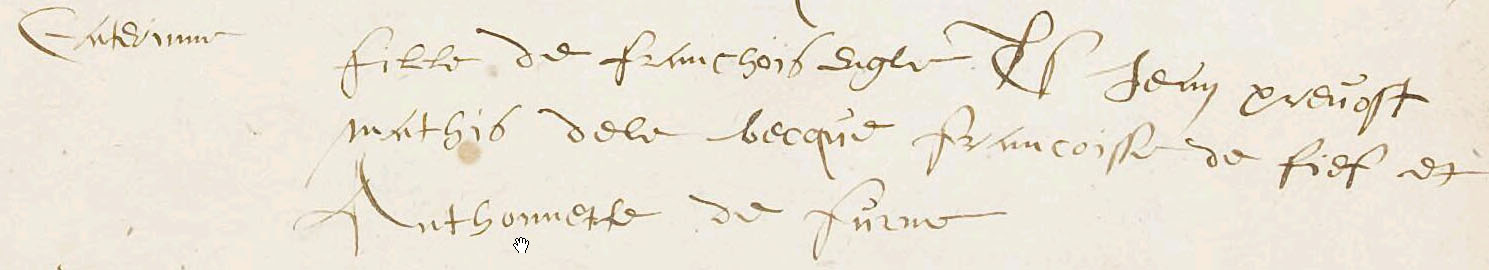 Caterinne
fille de franchois Engle Ts Jean prevost
mathis dele becque francoisse de fief et
Anthonnette de furne